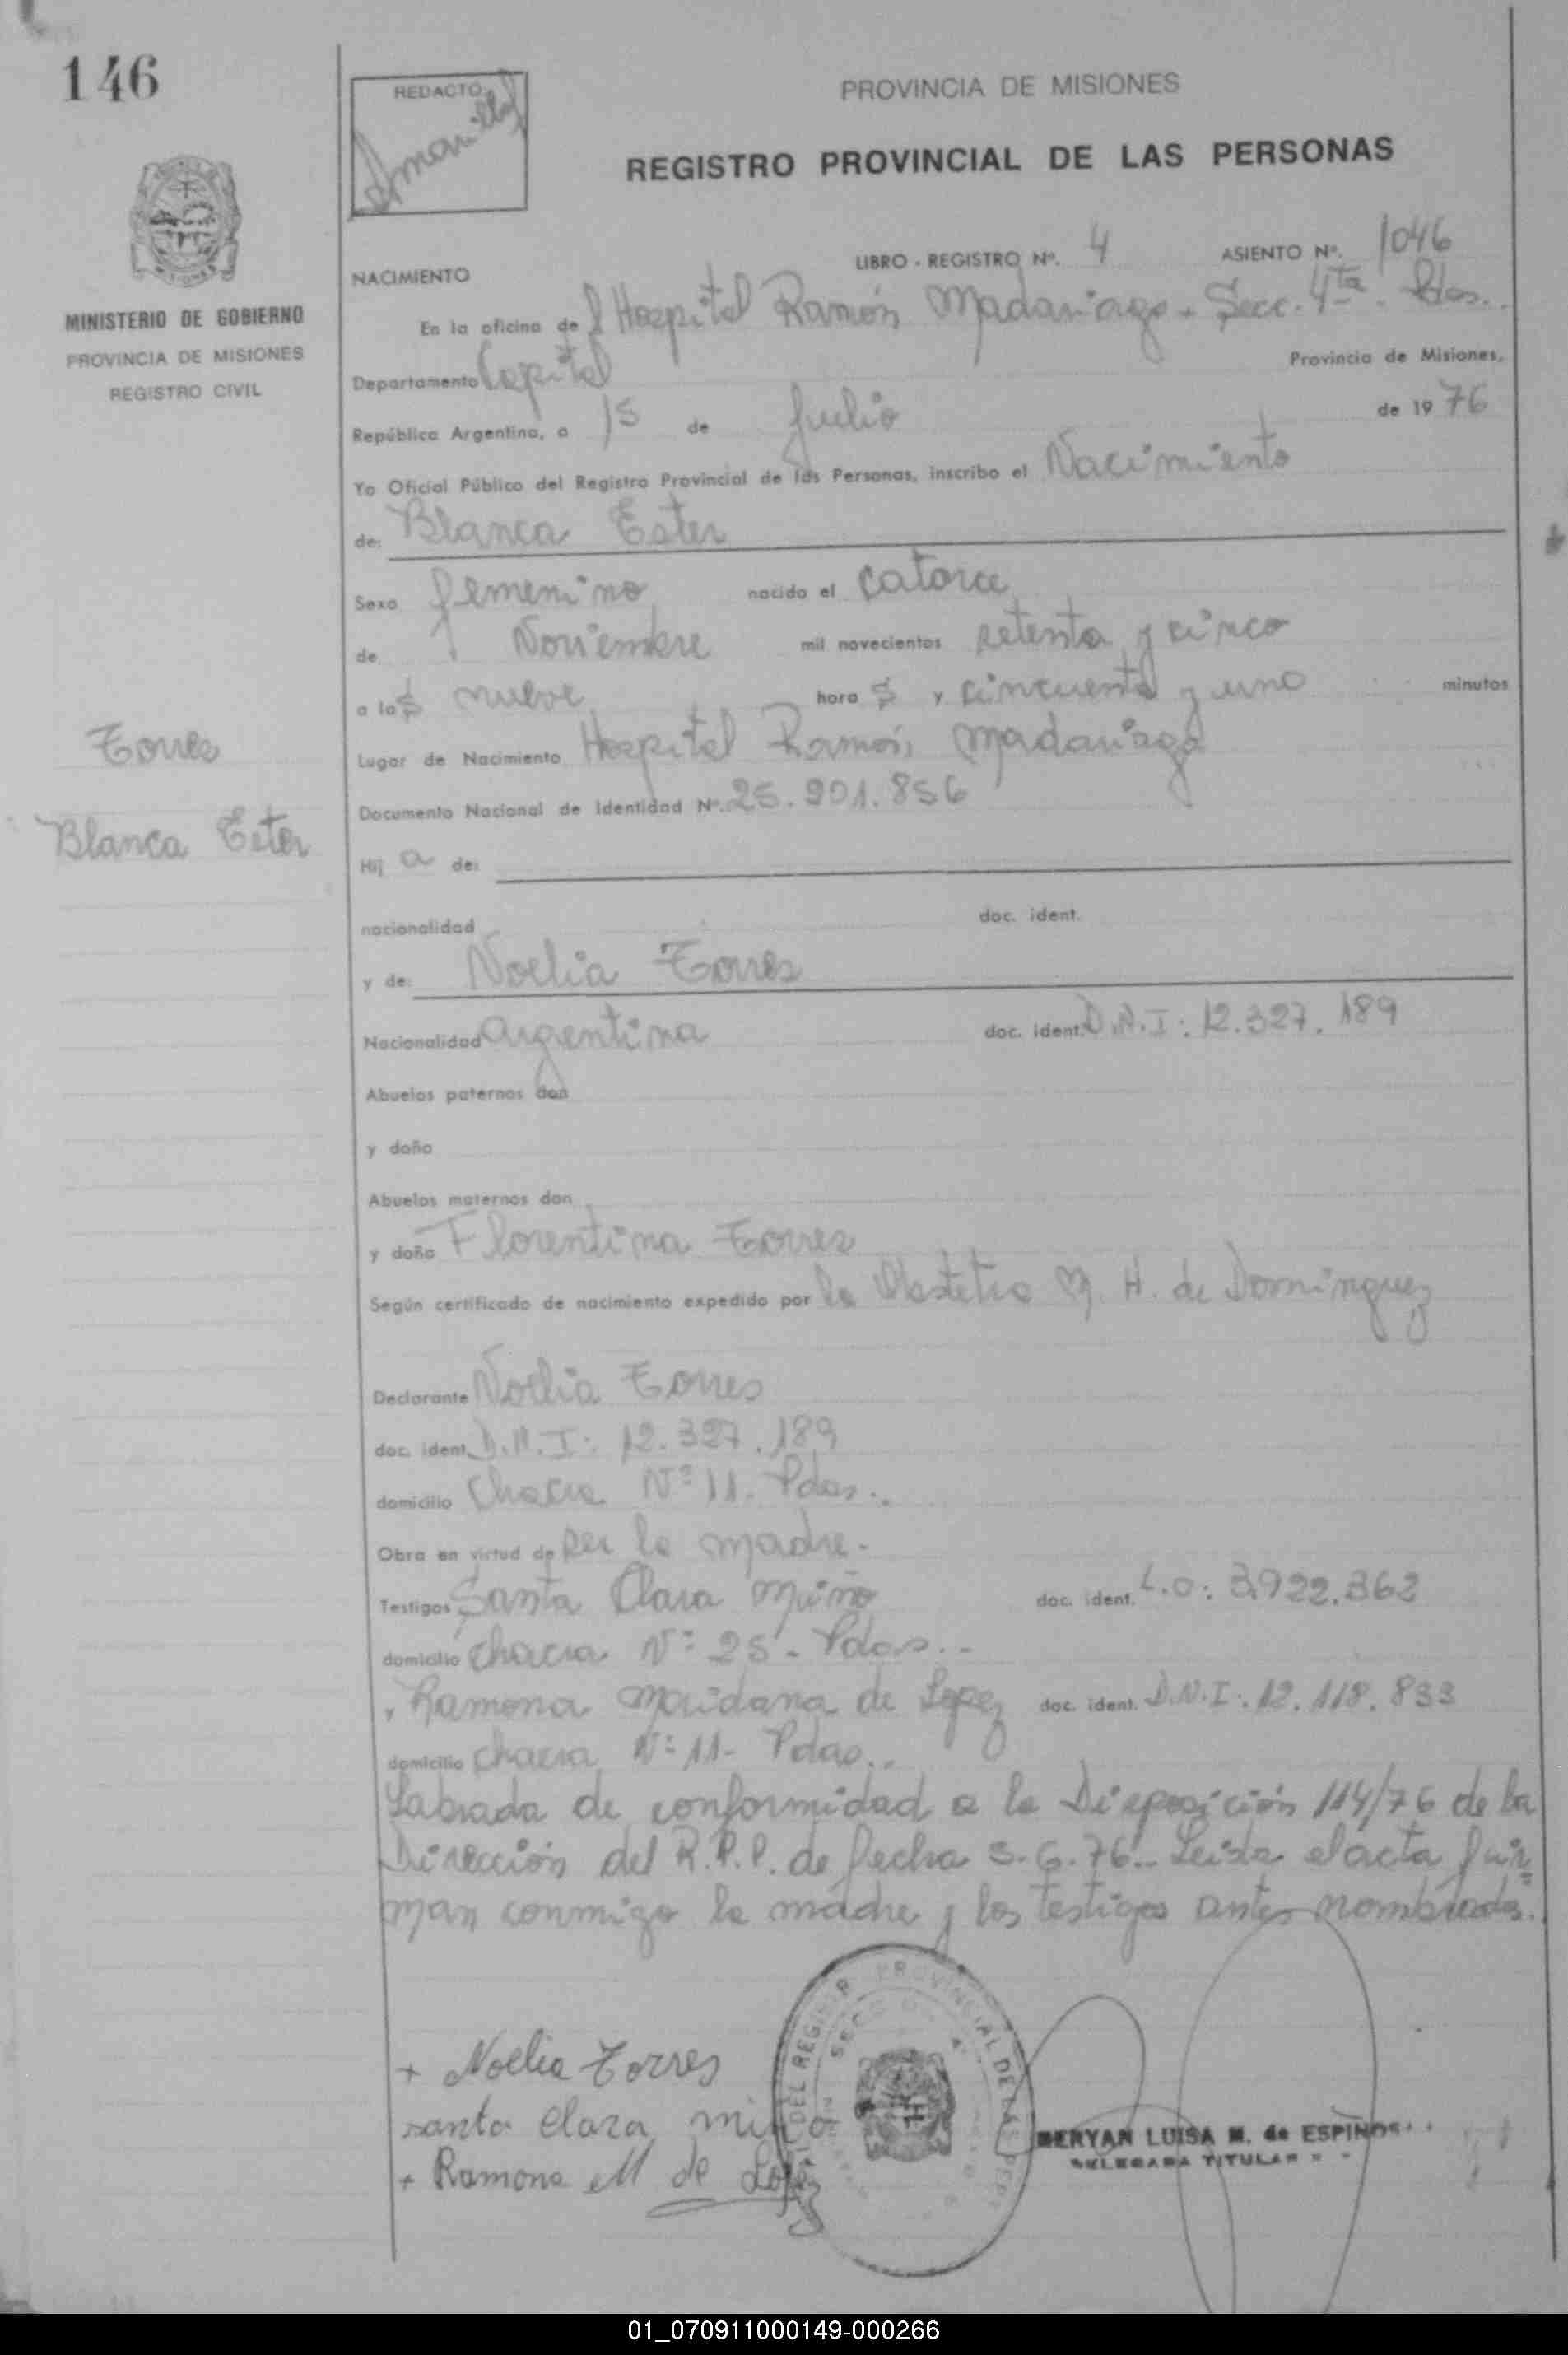 146
REDACTO
PROVINCIA DE MISIONES
REGISTRO PROVINCIAL DE LAS PERSONAS
MINISTERIO DE GOBIERNO
PROVINCIA DE MISIONES
REGISTRO CIVIL
LIBRO - REGISTRO Nº. 4 ASIENTO Nº. 1046
NACIMIENTO
En la oficina de l Hospital Ramón Madariaga - Secc. 4ta - Pdas.
Departamento Capital Provincia de Misiones,
República Argentina, a 15 de Julio de 1976
Yo Oficial Público del Registro Provincial de las Personas, inscribo el Nacimiento
de: Blanca Ester
Sexo femenino nacido el catorce
de Noviembre mil novecientos setenta y cinco
a las nueve hora s y cincuenta y uno minutos
Torres
Lugar de Nacimiento Hospital Ramón Madariaga
Documento Nacional de Identidad Nº. 25.901.856
Blanca Ester
Hij a de:
nacionalidad doc. ident.
y de: Noelia Torres
Nacionalidad Argentina doc. ident. D.N.I: 12.327.189
Abuelos paternos don
y doña
Abuelos maternos don
y doña Florentina Torres
Según certificado de nacimiento expedido por la Obstetra M. H. de Dominguez
Declarante Noelia Torres
doc. ident. D.N.I: 12.327.189
domicilio Chacra Nº 11. Pdas..
Obra en virtud de ser la madre.
Testigos Santa Clara Miño doc. ident. L.C: 3.922.362
domicilio Chacra Nº 25 - Pdas..-
y Ramona Maidana de Lopez doc. ident. D.N.I: 12.118.833
domicilio Chacra Nº 11- Pdas..
Labrada de conformidad a la Disposición 114/76 de la
Dirección del R.P.P. de fecha 3.6.76.- Leida el acta fir=
man conmigo la madre y los testigos antes nombrados.
+ Noelia Torres
santa clara miño
+ Ramona M de Lopez
DEL REGISTR PROVINCIAL DE LAS PERS
SECCION 4
MERYAN LUISA M. de ESPINOSA
DELEGADA TITULAR
01_070911000149-000266